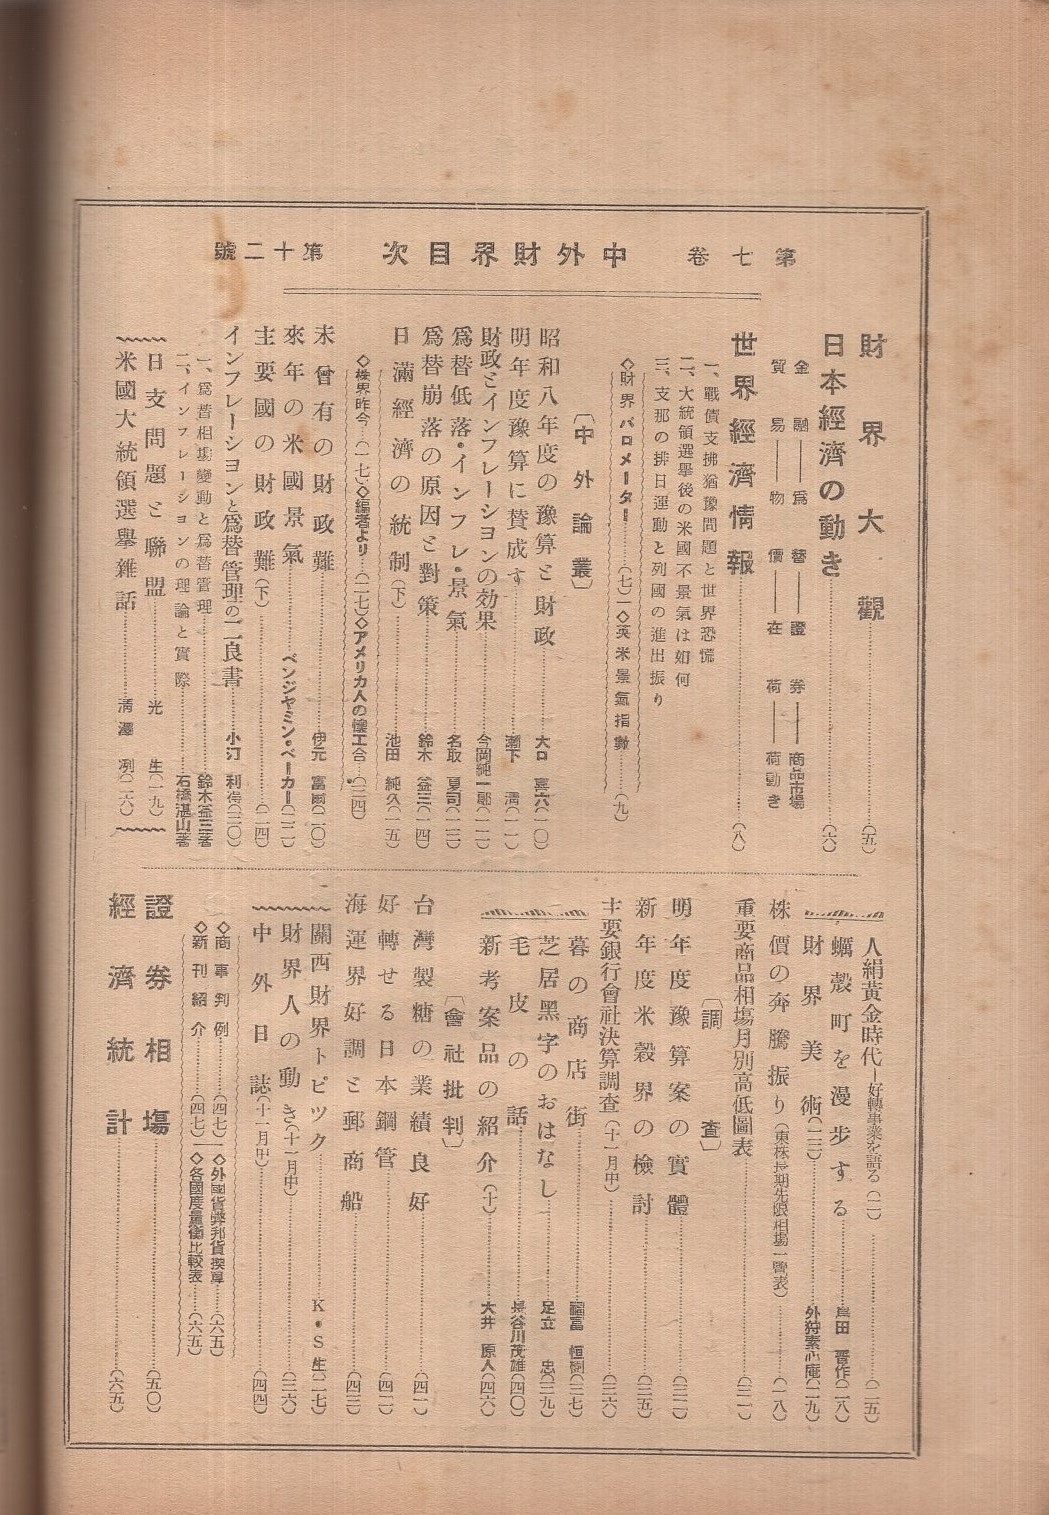 第七卷 中外財界目次 第十二號
財界大觀……(五)
日本經濟の動き……(六)
金融―爲替―證券―商品市場
貿易―物價―在荷―荷動き
世界經濟情報……(八)
一、戰債支拂猶豫問題と世界恐慌
二、大統領選擧後の米國不景氣は如何
三、支那の排日運動と列國の進出振り
◇財界バロメーター……(七)―◇英米景氣指數……(九)
〔中外論叢〕
昭和八年度の豫算と財政……大口喜六(一〇)
明年度豫算に賛成す……瀬下淸(一一)
財政とインフレーシヨンの効果……今岡純一郎(一二)
爲替低落・インフレ・景氣……名取夏司(一三)
爲替崩落の原因と對策……鈴木益三(一四)
日滿經濟の統制(下)……池田純久(一五)
◇株界昨今…(一七)◇編者より…(二七)◇アメリカ人の懷工合…(三四)
未曾有の財政難……伊元富爾(二〇)
來年の米國景氣……ベンジヤミン・ベーカー(二二)
主要國の財政難(下)……(二四)
インフレーシヨンと爲替管理の二良書……小汀利得(三〇)
一、爲替相場變動と爲替管理……鈴木益三著
二、インフレーシヨンの理論と實際……石橋湛山著
日支問題と聯盟……光生(一九)
米國大統領選擧雜話……淸澤冽(二六)
人絹黃金時代―好轉事業を語る(二)……(二五)
蠣殼町を漫步する……島田晋作(二八)
財界美術(二三)……外狩素心庵(二九)
株價の奔騰振り(東株長期先限相場一覽表)……(一八)
重要商品相塲月別高低圖表……(三一)
〔調査〕
明年度豫算案の實體……(三二)
新年度米穀界の檢討……(三五)
主要銀行會社決算調査(十一月中)……(三六)
暮の商店街……福富恒樹(三七)
芝居黑字のおはなし……足立忠(三九)
毛皮の話……長谷川茂雄(四〇)
新考案品の紹介(十)……大井原人(四六)
〔會社批判〕
台灣製糖の業績良好……(四一)
好轉せる日本鋼管……(四二)
海運界好調と郵商船……(四三)
關西財界トピツク……K・S生(二七)
財界人の動き(十一月中)……(三六)
中外日誌(十一月中)……(四四)
◇商事判例……(四七)―◇外國貨幣邦貨換算……(六五)
◇新刊紹介……(四七)―◇各國度量衡比較表……(六五)
證券相塲……(五〇)
經濟統計……(六五)